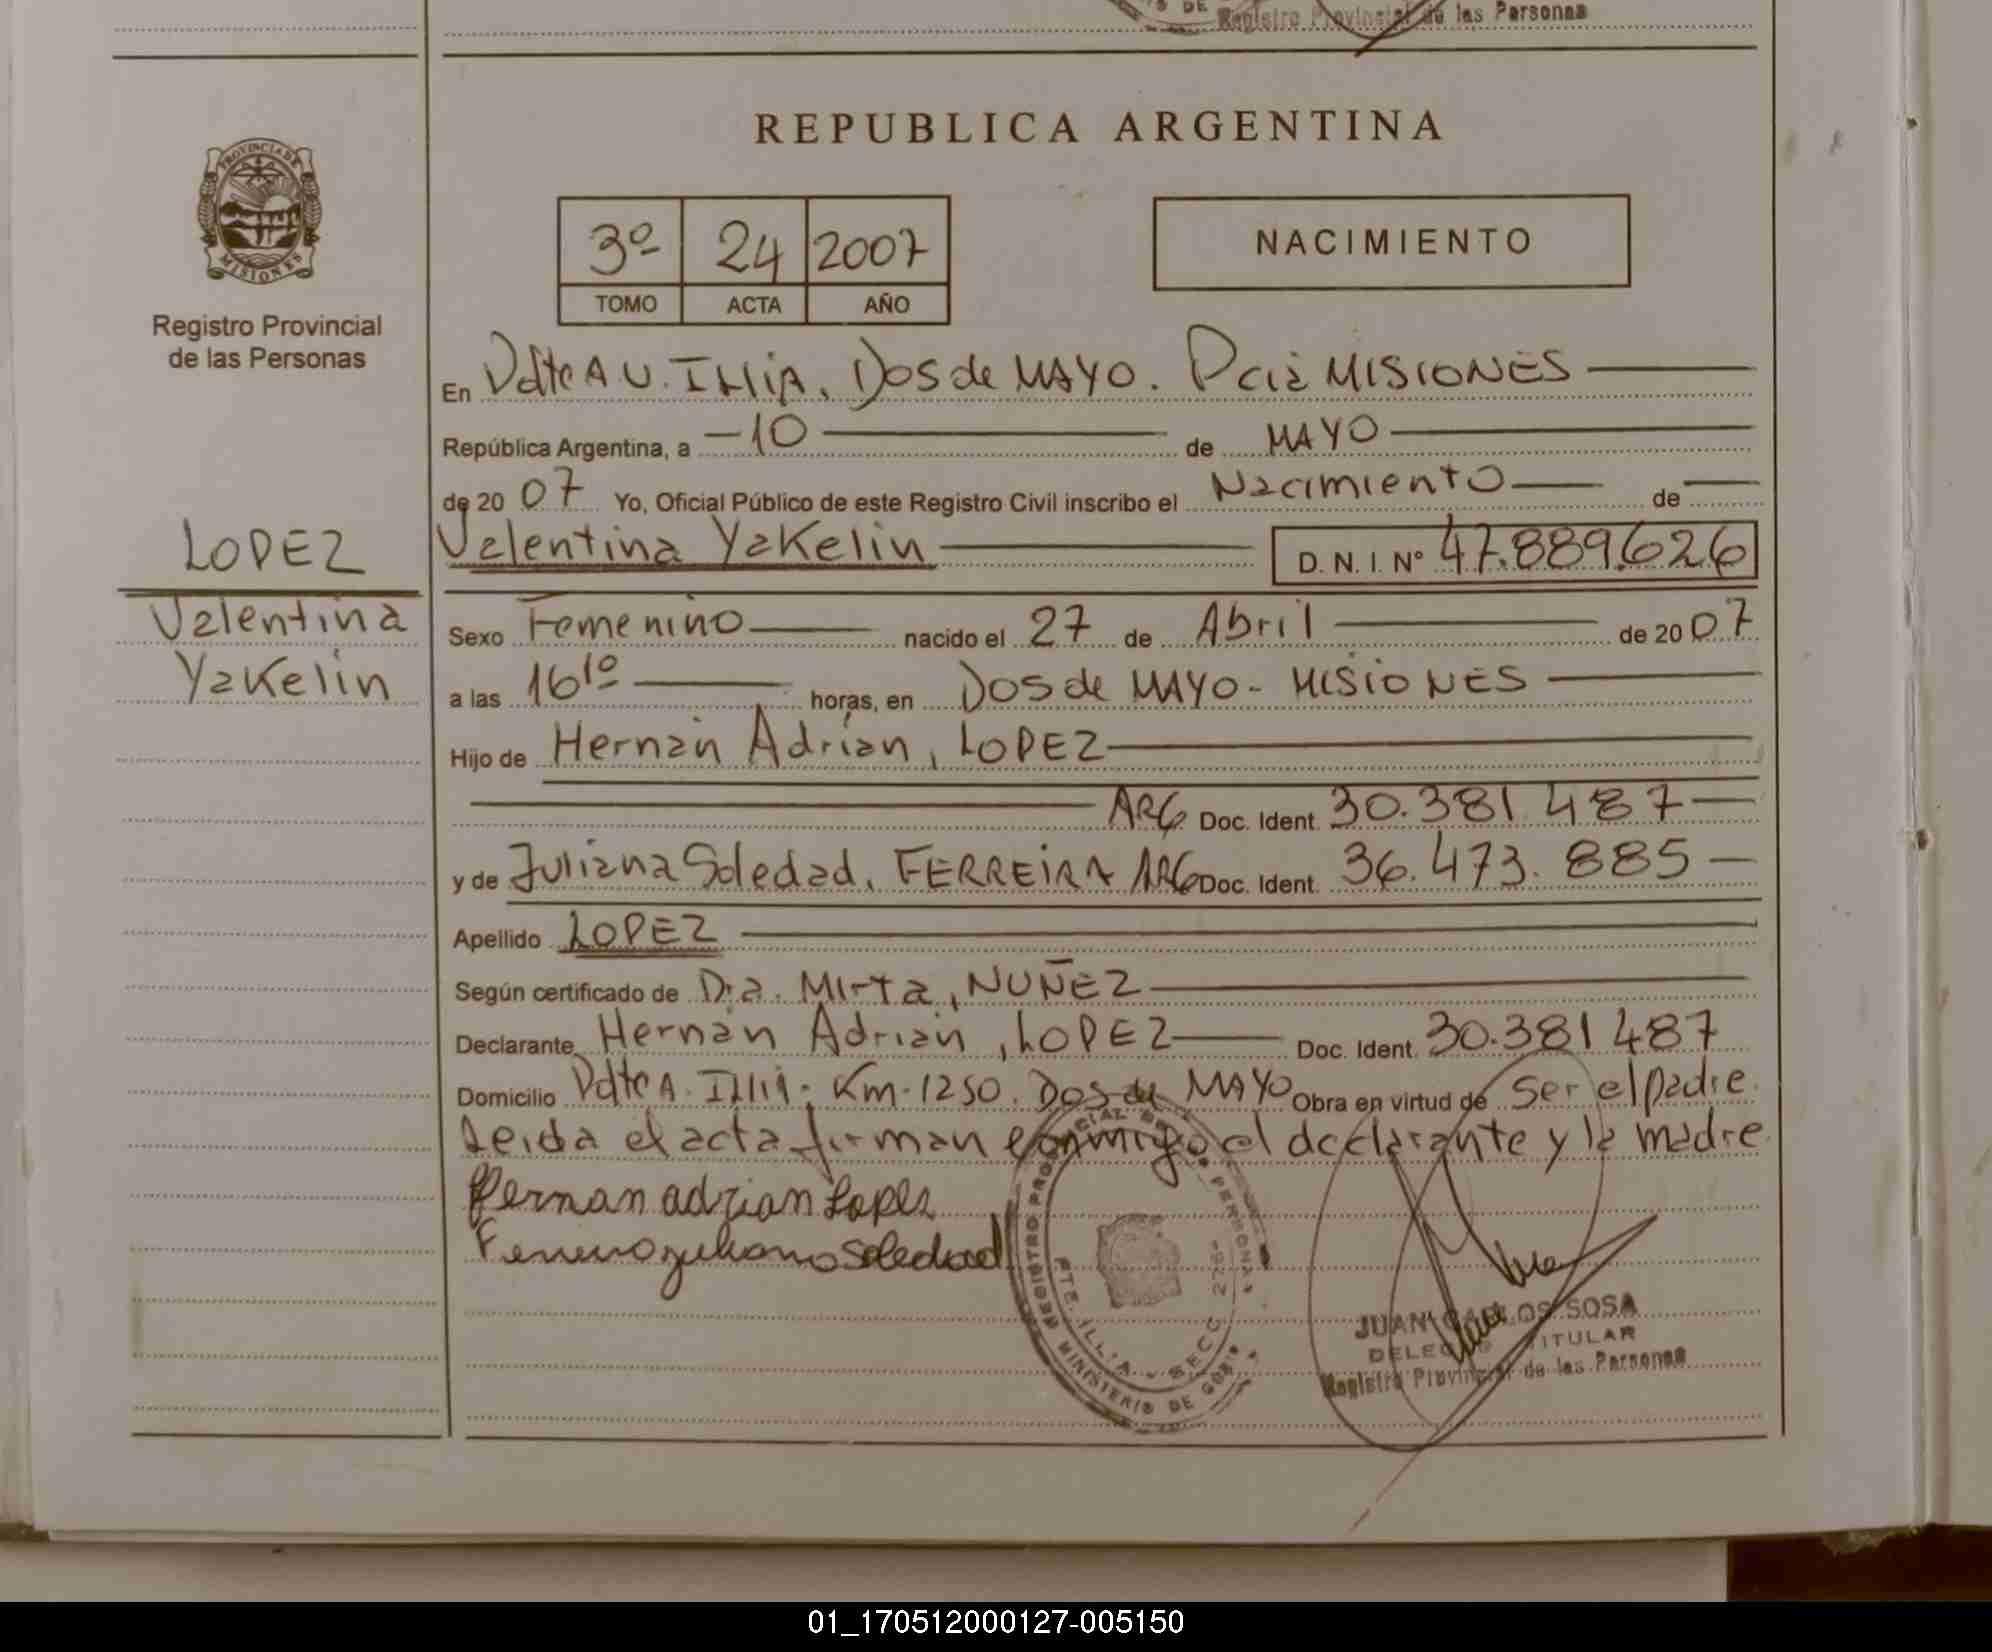 Registro Provincial de las Personas
REPUBLICA ARGENTINA
PROVINCIA DE
MISIONES
Registro Provincial
de las Personas
3º 24 2007
TOMO ACTA AÑO
NACIMIENTO
En Pdte A U. Illia. Dos de MAYO. Pcia MISIONES
República Argentina, a 10 de MAYO
de 2007 Yo, Oficial Público de este Registro Civil inscribo el Nacimiento de
LOPEZ
Valentina
Yakelin
Valentina Yakelin D. N. I. Nº 47.889.626
Sexo Femenino nacido el 27 de Abril de 2007
a las 16 10 horas, en Dos de MAYO - MISIONES
Hijo de Hernán Adrian, LOPEZ
ARG Doc. Ident. 30.381 487
y de Juliana Soledad, FERREIRA ARG Doc. Ident. 36.473.885
Apellido LOPEZ
Según certificado de Dra. Mirta, NUÑEZ
Declarante Hernán Adrian, LOPEZ Doc. Ident. 30.381 487
Domicilio Pdte A. Illia - Km. 1250. Dos de MAYO Obra en virtud de ser el padre.
Leida el acta firman conmigo el declarante y la madre
Hernan adrian Lopez
Soledad
REGISTRO PROVINCIAL DE LAS PERSONAS
PTE. ILLIA - SECC. 2762
MINISTERIO DE GOB
JUAN CARLOS SOSA
DELEGADO TITULAR
Registro Provincial de las Personas
01_170512000127-005150